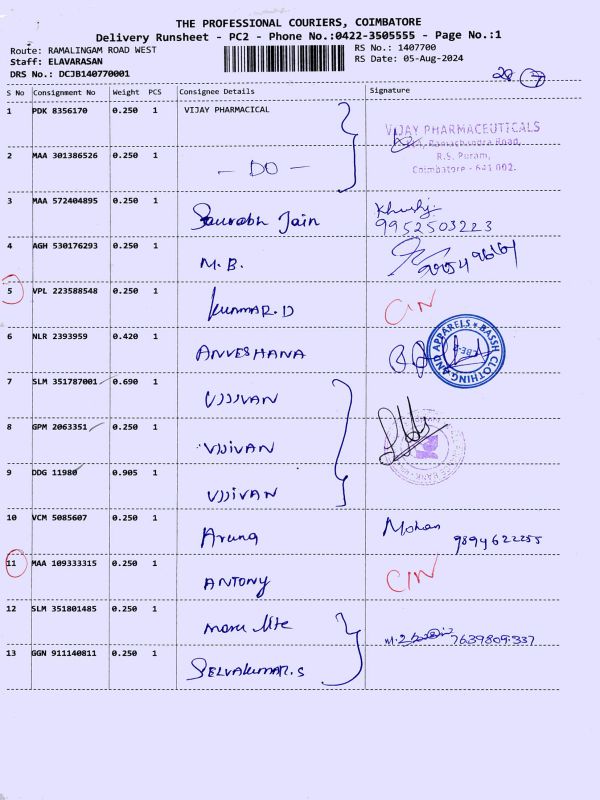 THE PROFESSIONAL COURIERS, COIMBATORE
Delivery Runsheet - PC2 - Phone No.:0422-3505555 - Page No.:1
Route: RAMALINGAM ROAD WEST RS No.: 1407700
Staff: ELAVARASAN RS Date: 05-Aug-2024
DRS No.: DCJB140770001
28 7
S No Consignment No Weight PCS Consignee Details Signature
1 PDK 8356170 0.250 1 VIJAY PHARMACICAL
VIJAY PHARMACEUTICALS
Ramachandra Road,
R.S. Puram,
Coimbatore - 641 002.
2 MAA 301386526 0.250 1 - DO -
3 MAA 572404895 0.250 1 Saurabh Jain
9952503223
4 AGH 530176293 0.250 1 M.B.
5 VPL 223588548 0.250 1 kummAR.D CIN
6 NLR 2393959 0.420 1 ANVESHANA
BASSH CLOTHING AND APPARELS
CBE-2
7 SLM 351787001 0.690 1 UJJIVAN
8 GPM 2063351 0.250 1 UJJIVAN
9 DDG 11980 0.905 1 UJJIVAN
10 VCM 5085607 0.250 1 Aruna Mohan
9894622255
11 MAA 109333315 0.250 1 ANTONY CIN
12 SLM 351801485 0.250 1
7639809337
13 GGN 911140811 0.250 1 SELVAkUMAR.S